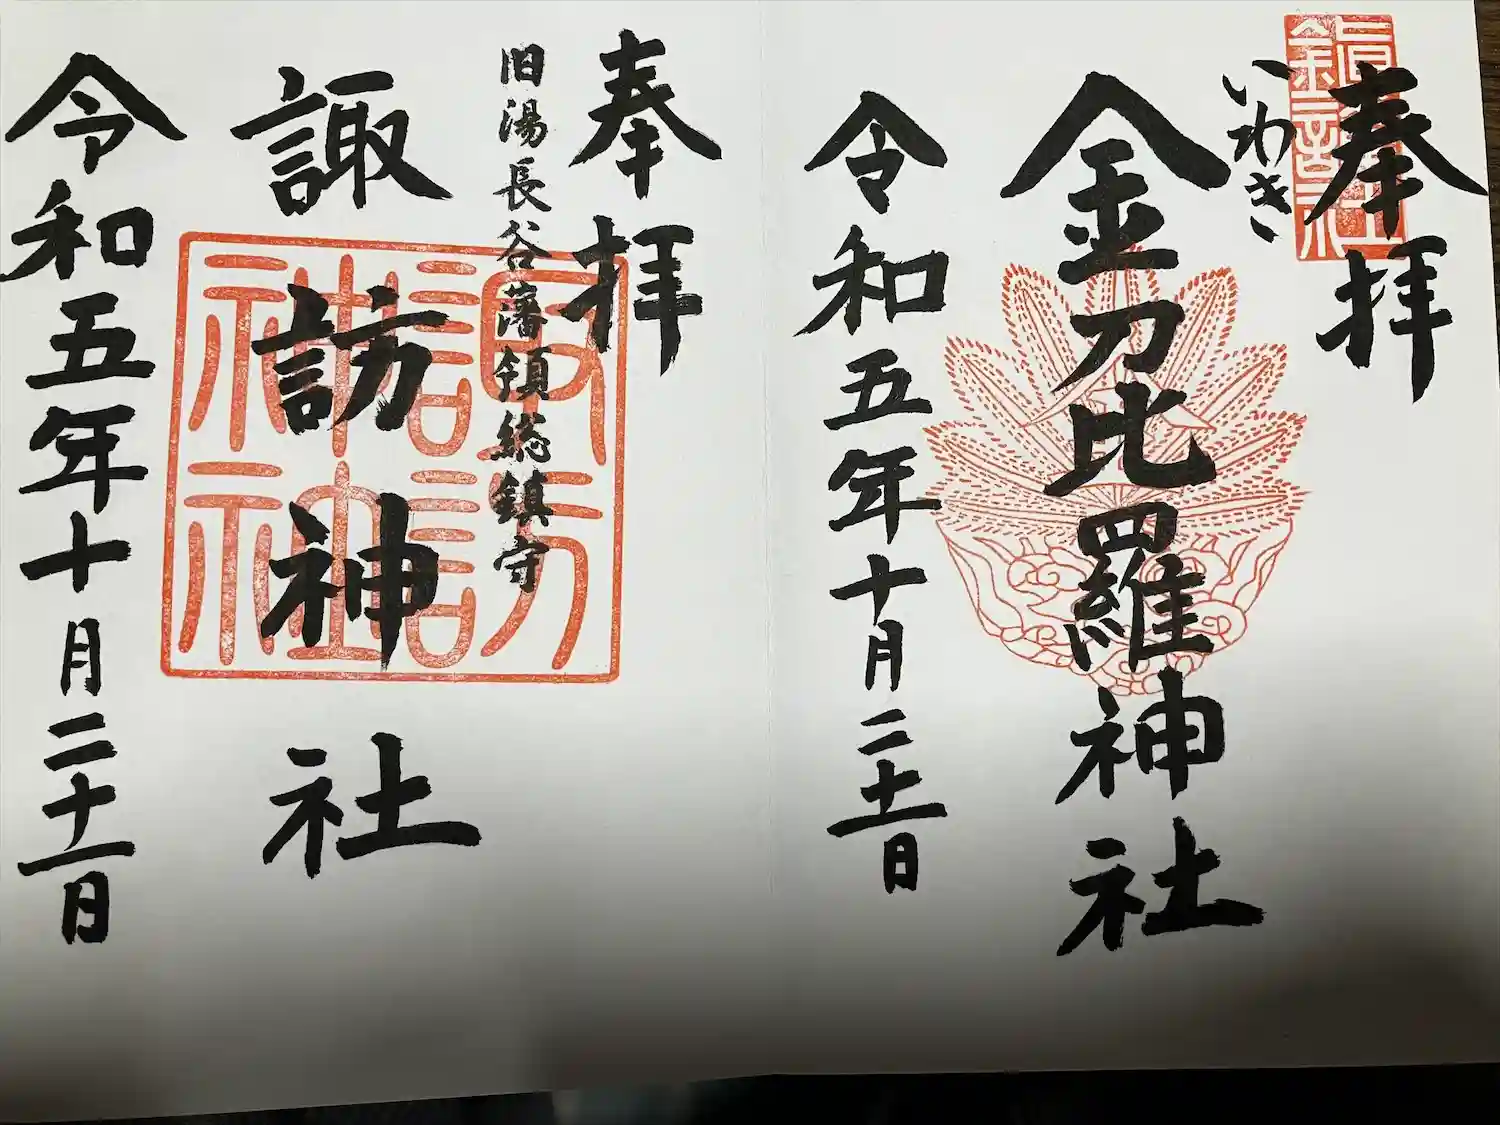 奉拝
いわき
金刀比羅神社
令和五年十月二十一日
奉拝
旧湯長谷藩領総鎮守
諏訪神社
諏訪
神社
令和五年十月二十一日